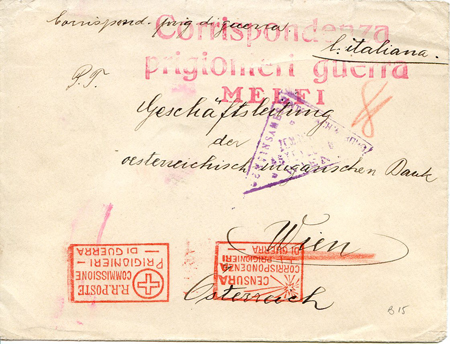 Corrispond. prig. di guerra
Corrispondenza
prigionieri guerra
MELFI
l. italiana.
P. T.
Geschäftsleitung
der
oesterreichisch-ungarischen Bank
Wien
Österreich
R.R. POSTE
COMMISSIONE
PRIGIONIERI
DI GUERRA
CENSURA
CORRISPONDENZA
PRIGIONIERI
DI GUERRA
B 15